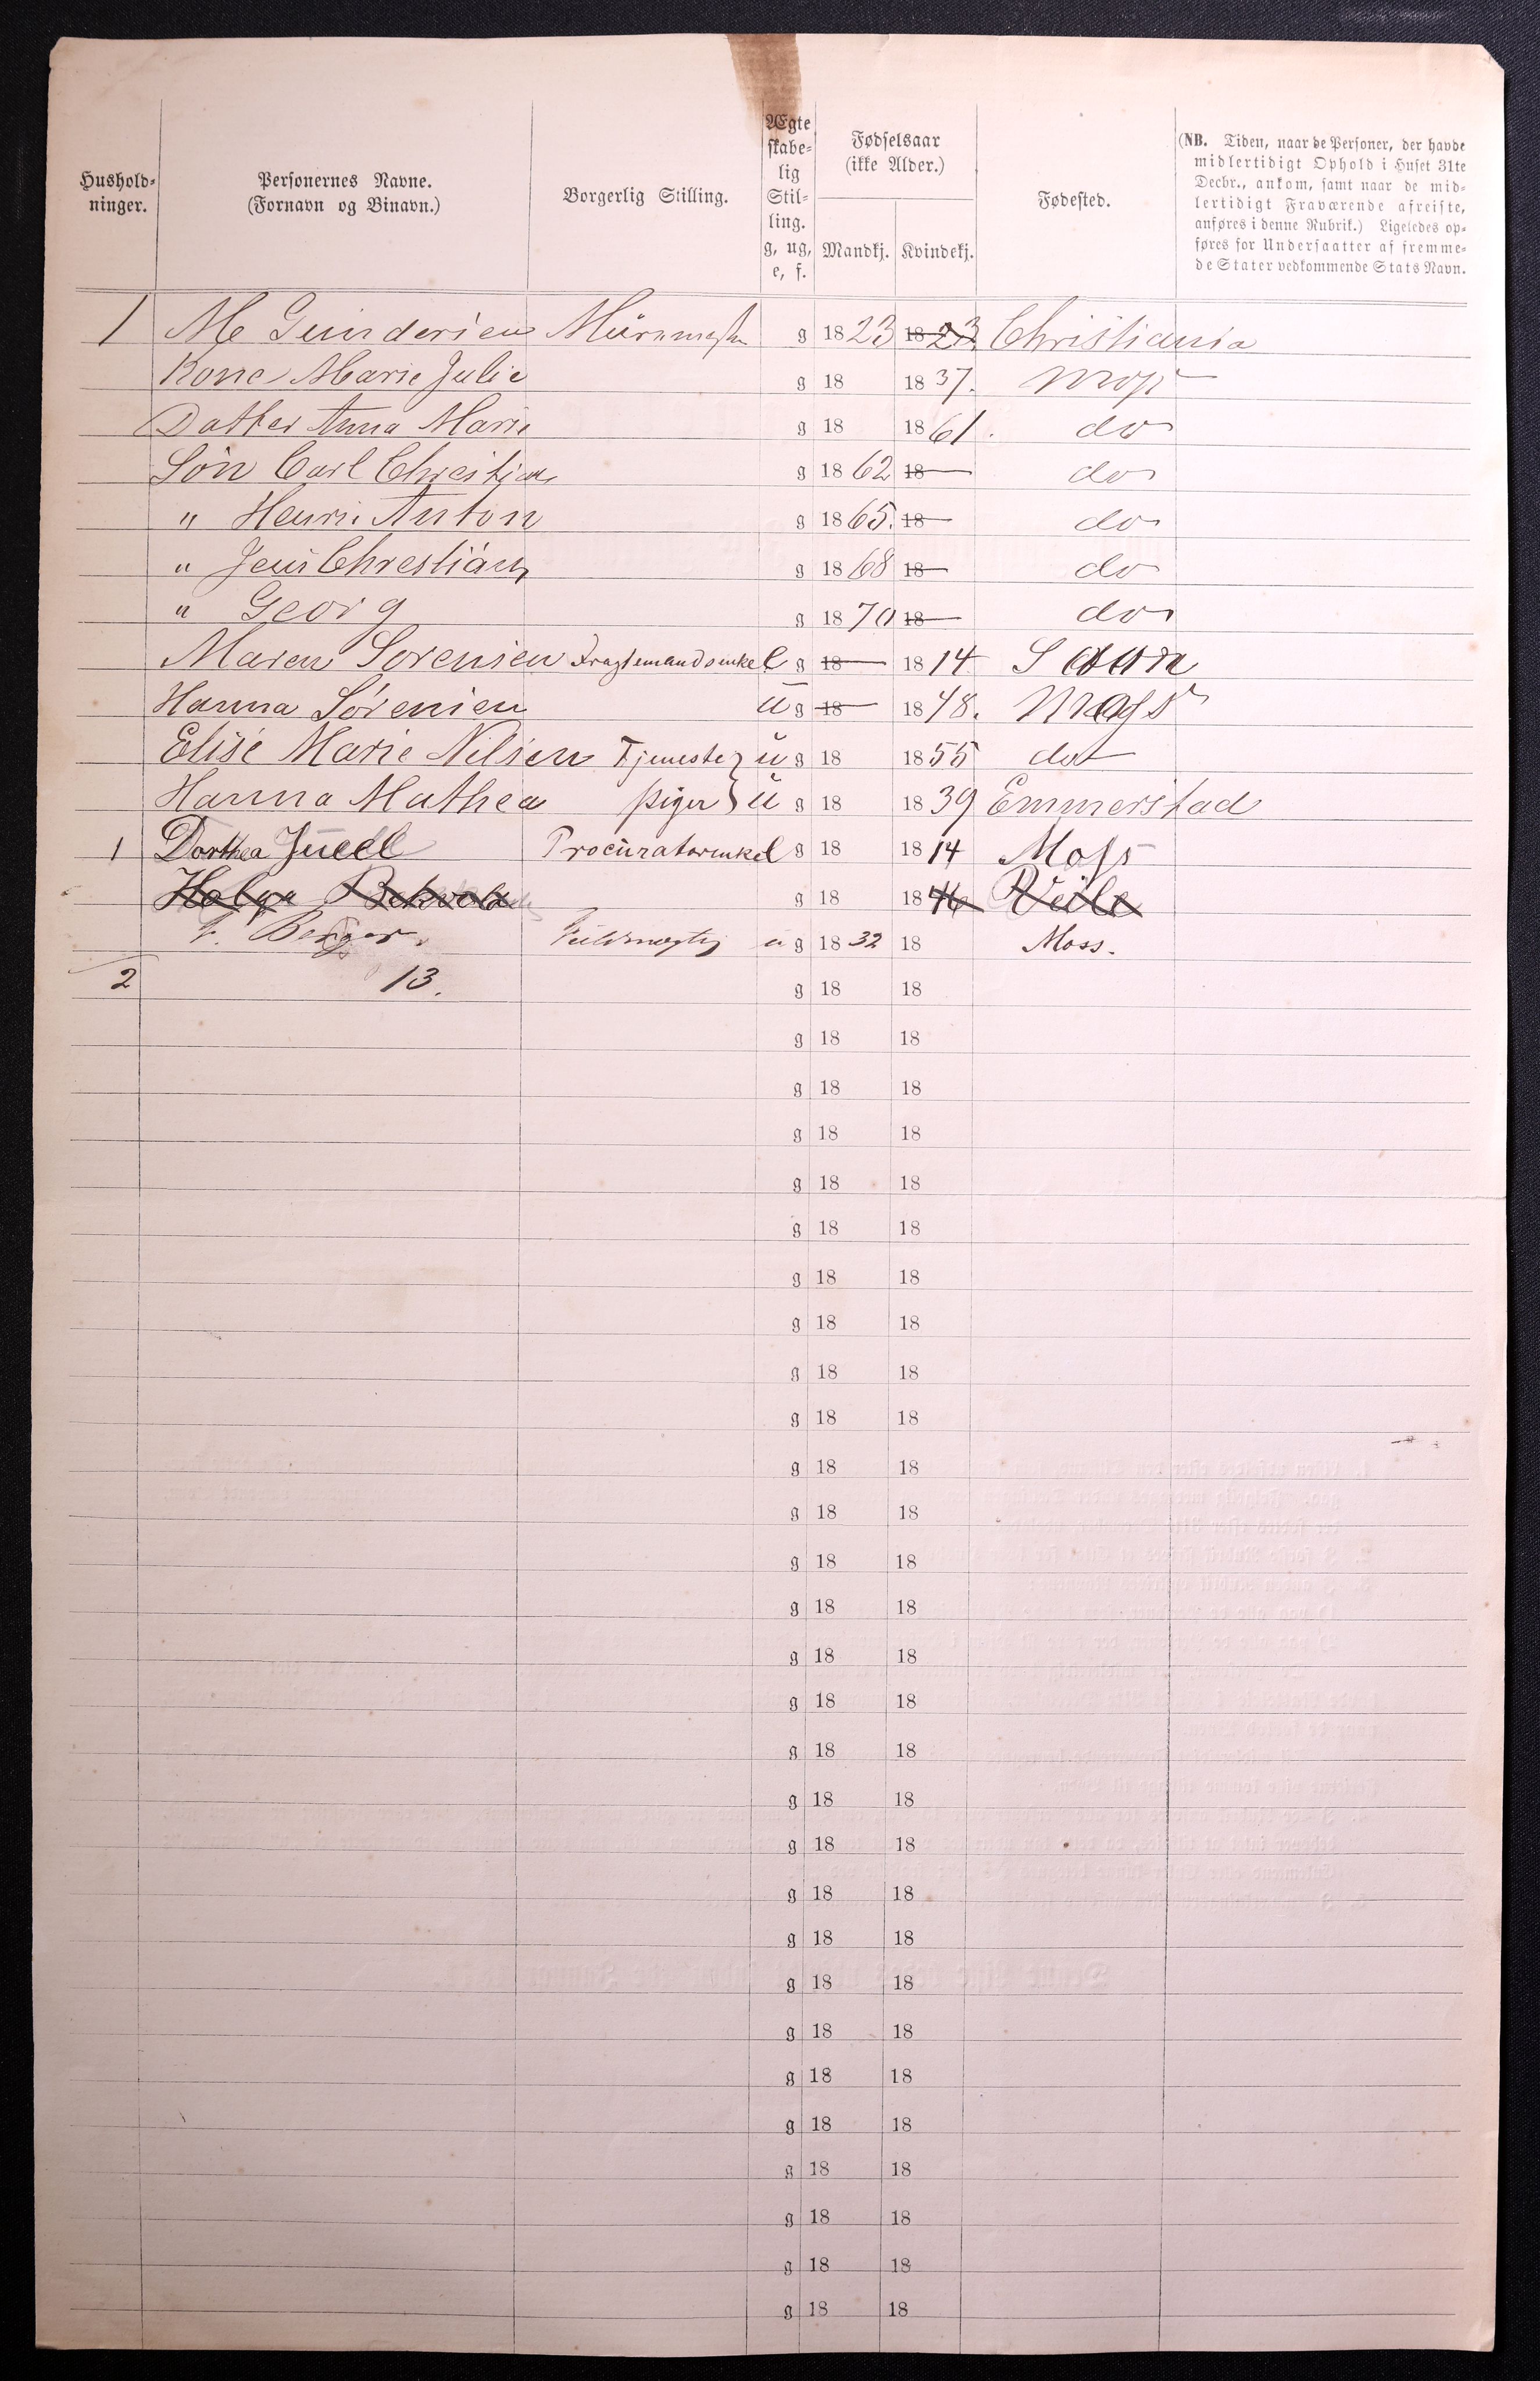 Hushold-
ninger.
Personernes Navne.
(Fornavn og Binavn.)
Borgerlig Stilling.
Ægte
skabe-
lig
Stil-
ling.
g, ug,
e, f.
Fødselsaar
(ikke Alder.)
Mandkj. Kvindekj.
Fødested.
(NB. Tiden, naar de Personer, der havde
midlertidigt Ophold i Huset 31te
Decbr., ankom, samt naar de mid-
lertidigt Fraværende afreiste,
anføres i denne Rubrik.) Ligeledes op-
føres for Undersaatter af fremme-
de Stater vedkommende Stats Navn.
1 M Gundersen Mürmester g 1823 1823 Christiania
Kone Marie Julie g 18 1837. Moss
Datter Anna Marie g 18 1861. do
Sön Carl Christian g 1862 18 do
" Henri Anton g 1865. 18 do
" Jens Christian g 1868 18 do
" Georg g 1870 18 do
Maren Sorensen Fragtemandsenke e g 18 1814 Saan
Hanna Sörensen ug 18 1848. Moss
Elise Marie Nilsen Tjeneste ug 18 1855 do
Hanna Mathea piger ug 18 1839 Emmerstad
1 Dorthea Juell Procuratorenke e g 18 1814 Moss
g 18 1846
Berger. Fuldmægtig ug 1832 18 Moss.
2 13. g 18 18
g 18 18
g 18 18
g 18 18
g 18 18
g 18 18
g 18 18
g 18 18
g 18 18
g 18 18
g 18 18
g 18 18
g 18 18
g 18 18
g 18 18
g 18 18
g 18 18
g 18 18
g 18 18
g 18 18
g 18 18
g 18 18
g 18 18
g 18 18
g 18 18
g 18 18
g 18 18
g 18 18
g 18 18